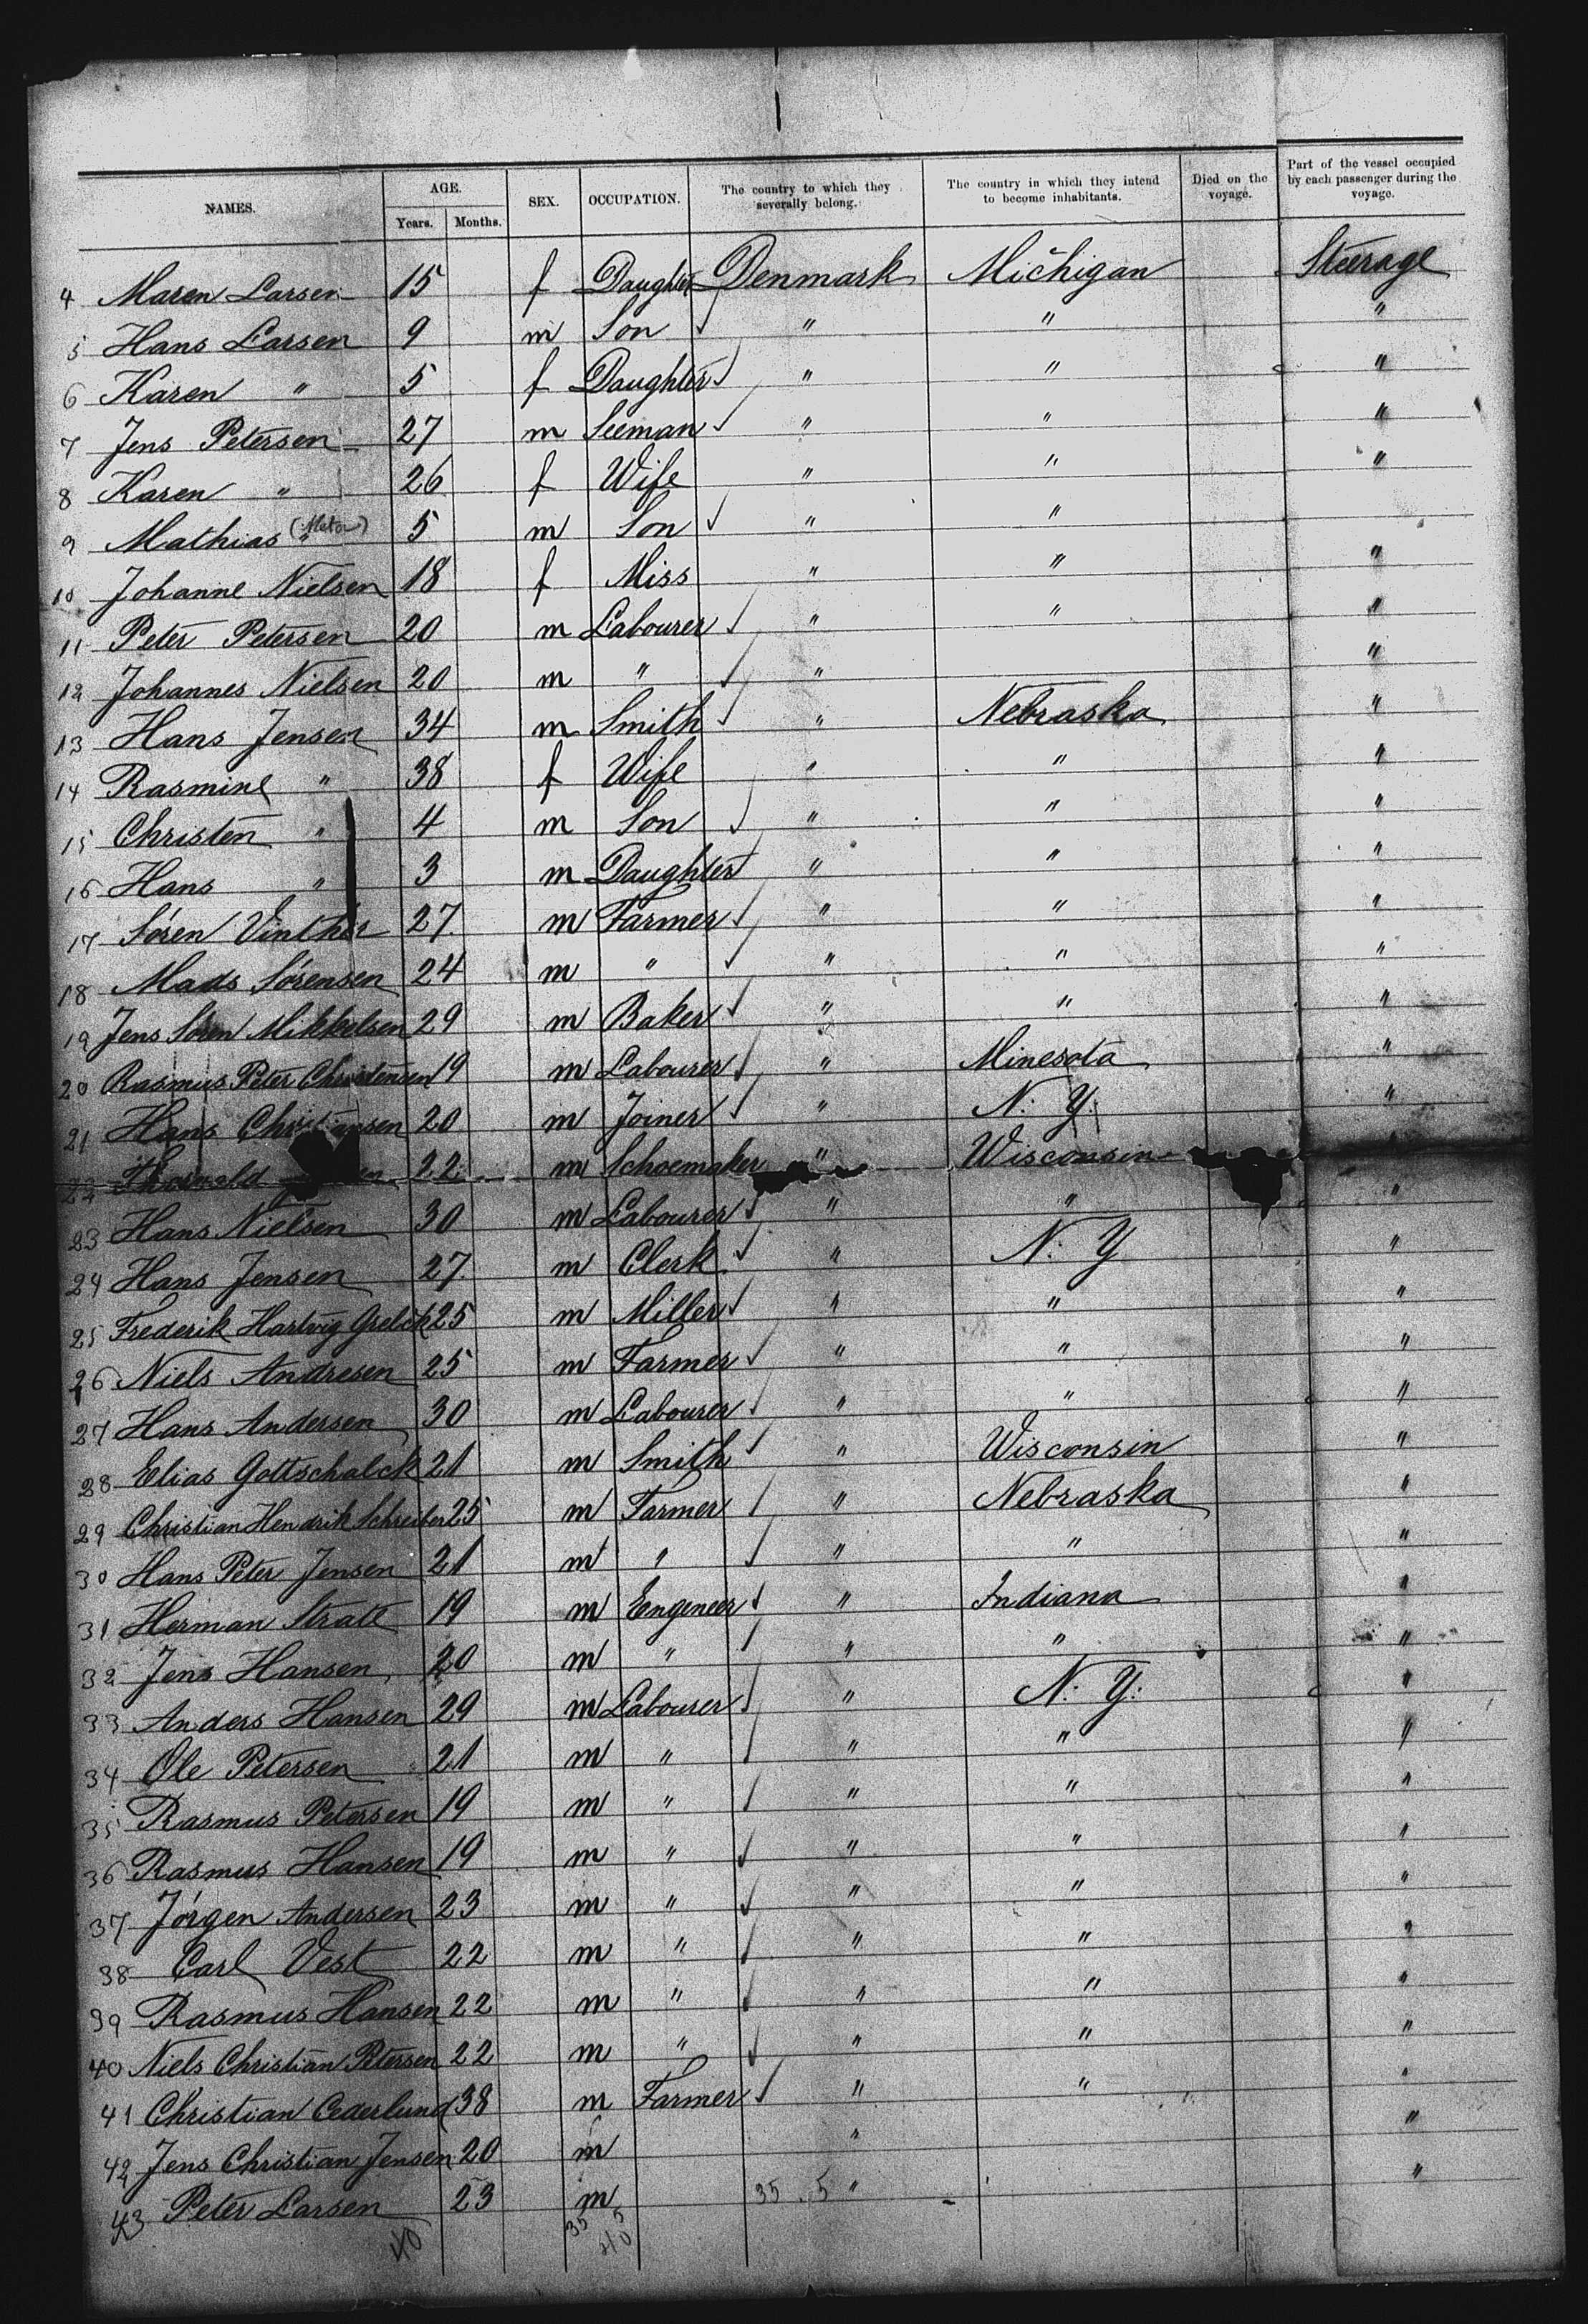 NAMES. AGE. Years. Months. SEX. OCCUPATION. The country to which they severally belong. The country in which they intend to become inhabitants. Died on the voyage. Part of the vessel occupied by each passenger during the voyage.
4 Maren Larsen 15 f Daughter Denmark Michigan Steerage
5 Hans Larsen 9 m Son " " "
6 Karen " 5 f Daughter " " "
7 Jens Petersen 27 m Seeman " " "
8 Karen " 26 f Wife " " "
9 Mathias " 5 m Son " " "
10 Johanne Nielsen 18 f Miss " " "
11 Peter Petersen 20 m Labourer " " "
12 Johannes Nielsen 20 m " " "
13 Hans Jensen 34 m Smith " Nebraska "
14 Rasmine " 38 f Wife " " "
15 Christen " 4 m Son " " "
16 Hans " 3 m Daughter " " "
17 Sören Vinther 27 m Farmer " " "
18 Mads Sörensen 24 m " " " "
19 Jens Sören Mikkelsen 29 m Baker " " "
20 Rasmus Peter Christensen 19 m Labourer " Minesota "
21 Hans Christiansen 20 m Joiner " N. Y. "
22 Thorvald 22 m Schoemaker " Wisconsin
23 Hans Nielsen 30 m Labourer " " "
24 Hans Jensen 27 m Clerk " N. Y "
25 Frederik Hartvig Grelck 25 m Miller " " "
26 Niels Andresen 25 m Farmer " " "
27 Hans Andersen 30 m Labourer " " "
28 Elias Gottschalck 21 m Smith " Wisconsin "
29 Christian Hendrik Schreiber 25 m Farmer " Nebraska "
30 Hans Peter Jensen 21 m " " " "
31 Herman Strate 19 m Engeneer " Indiana "
32 Jens Hansen 20 m " " " "
33 Anders Hansen 29 m Labourer " N. Y. "
34 Ole Petersen 21 m " " " "
35 Rasmus Petersen 19 m " " " "
36 Rasmus Hansen 19 m " " " "
37 Jörgen Andersen 23 m " " " "
38 Carl Vest 22 m " " " "
39 Rasmus Hansen 22 m " " " "
40 Niels Christian Petersen 22 m " " " "
41 Christian Cederlund 38 m Farmer " " "
42 Jens Christian Jensen 20 m " "
43 Peter Larsen 23 m 35 . 5 " "
40 35 5
40